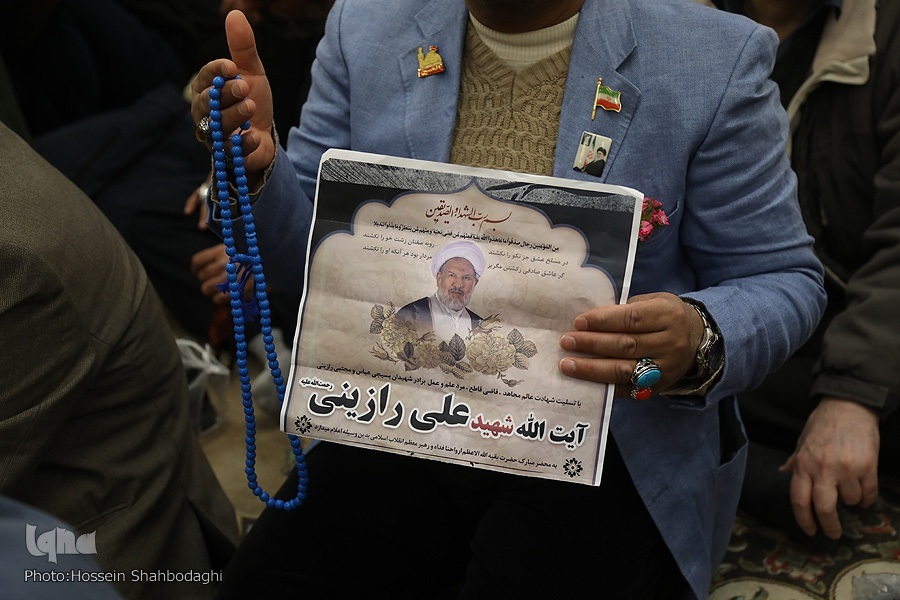 بسم رب الشهداء و الصدیقین
مِنَ المُؤمِنینَ رِجالٌ صَدَقوا ما عاهَدُوا اللهَ عَلَیهِ فَمِنهُم مَّن قَضی نَحبَهُ وَمِنهُم مَّن یَنتَظِرُ وَما بَدَّلوا تَبدیلا
در مسلخ عشق جز نکو را نکشند روبه صفتان زشت خو را نکشند
گر عاشق صادقی ز کشتن مگریز مردار بود هر آنکه او را نکشند
با تسلیت شهادت عالم مجاهد ، قاضی قاطع ، مرد علم و عمل برادر شهیدان بسیجی عباس و مجتبی رازینی
آیت الله شهید علی رازینی رحمت‌الله‌علیه
به محضر مبارک حضرت بقیه الله الاعظم ارواحنا فداه و رهبر معظم انقلاب اسلامی بدین وسیله اعلام میدارد
iqna
Photo:Hossein Shahbodaghi